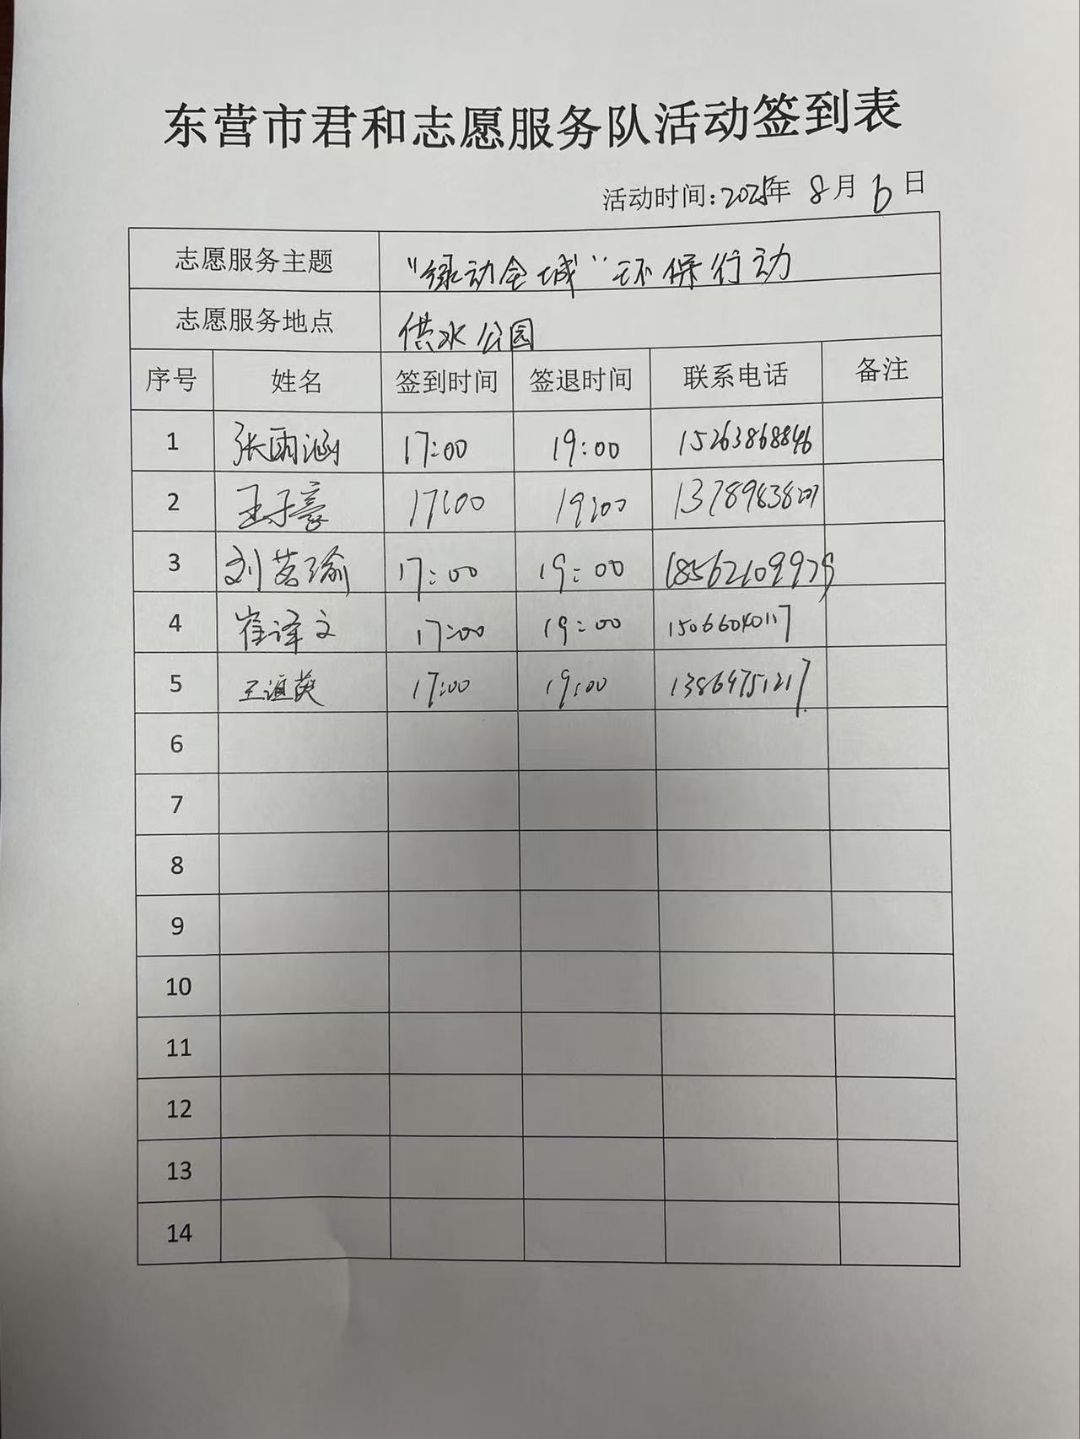 东营市君和志愿服务队活动签到表
活动时间:2025年 8月 6日
志愿服务主题 "绿动全城"环保行动
志愿服务地点 供水公园
序号 姓名 签到时间 签退时间 联系电话 备注
1 张雨涵 17:00 19:00 15263868846
2 王子豪 17:00 19:00
3 刘茗瑜 17:00 19:00 18562109979
4 崔译文 17:00 19:00 15066040117
5 17:00 19:00 13864751217
6
7
8
9
10
11
12
13
14